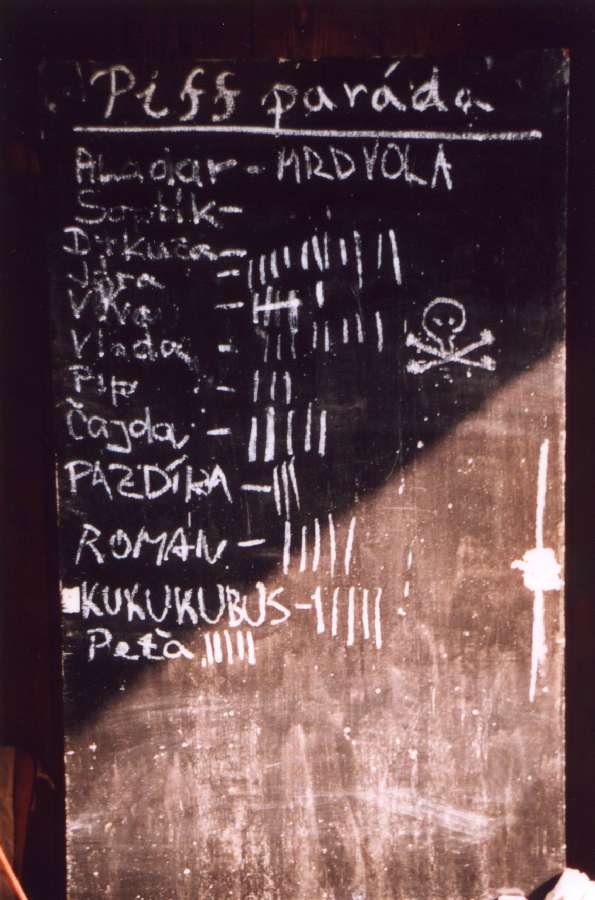 Piff paráda
ALadar - MRDVOLA
-
Dykuca -
Jára -
-
Vlada -
Pip -
Čajda -
PAZDÍRA -
ROMAN -
KUKUKUBUS -
Peťa